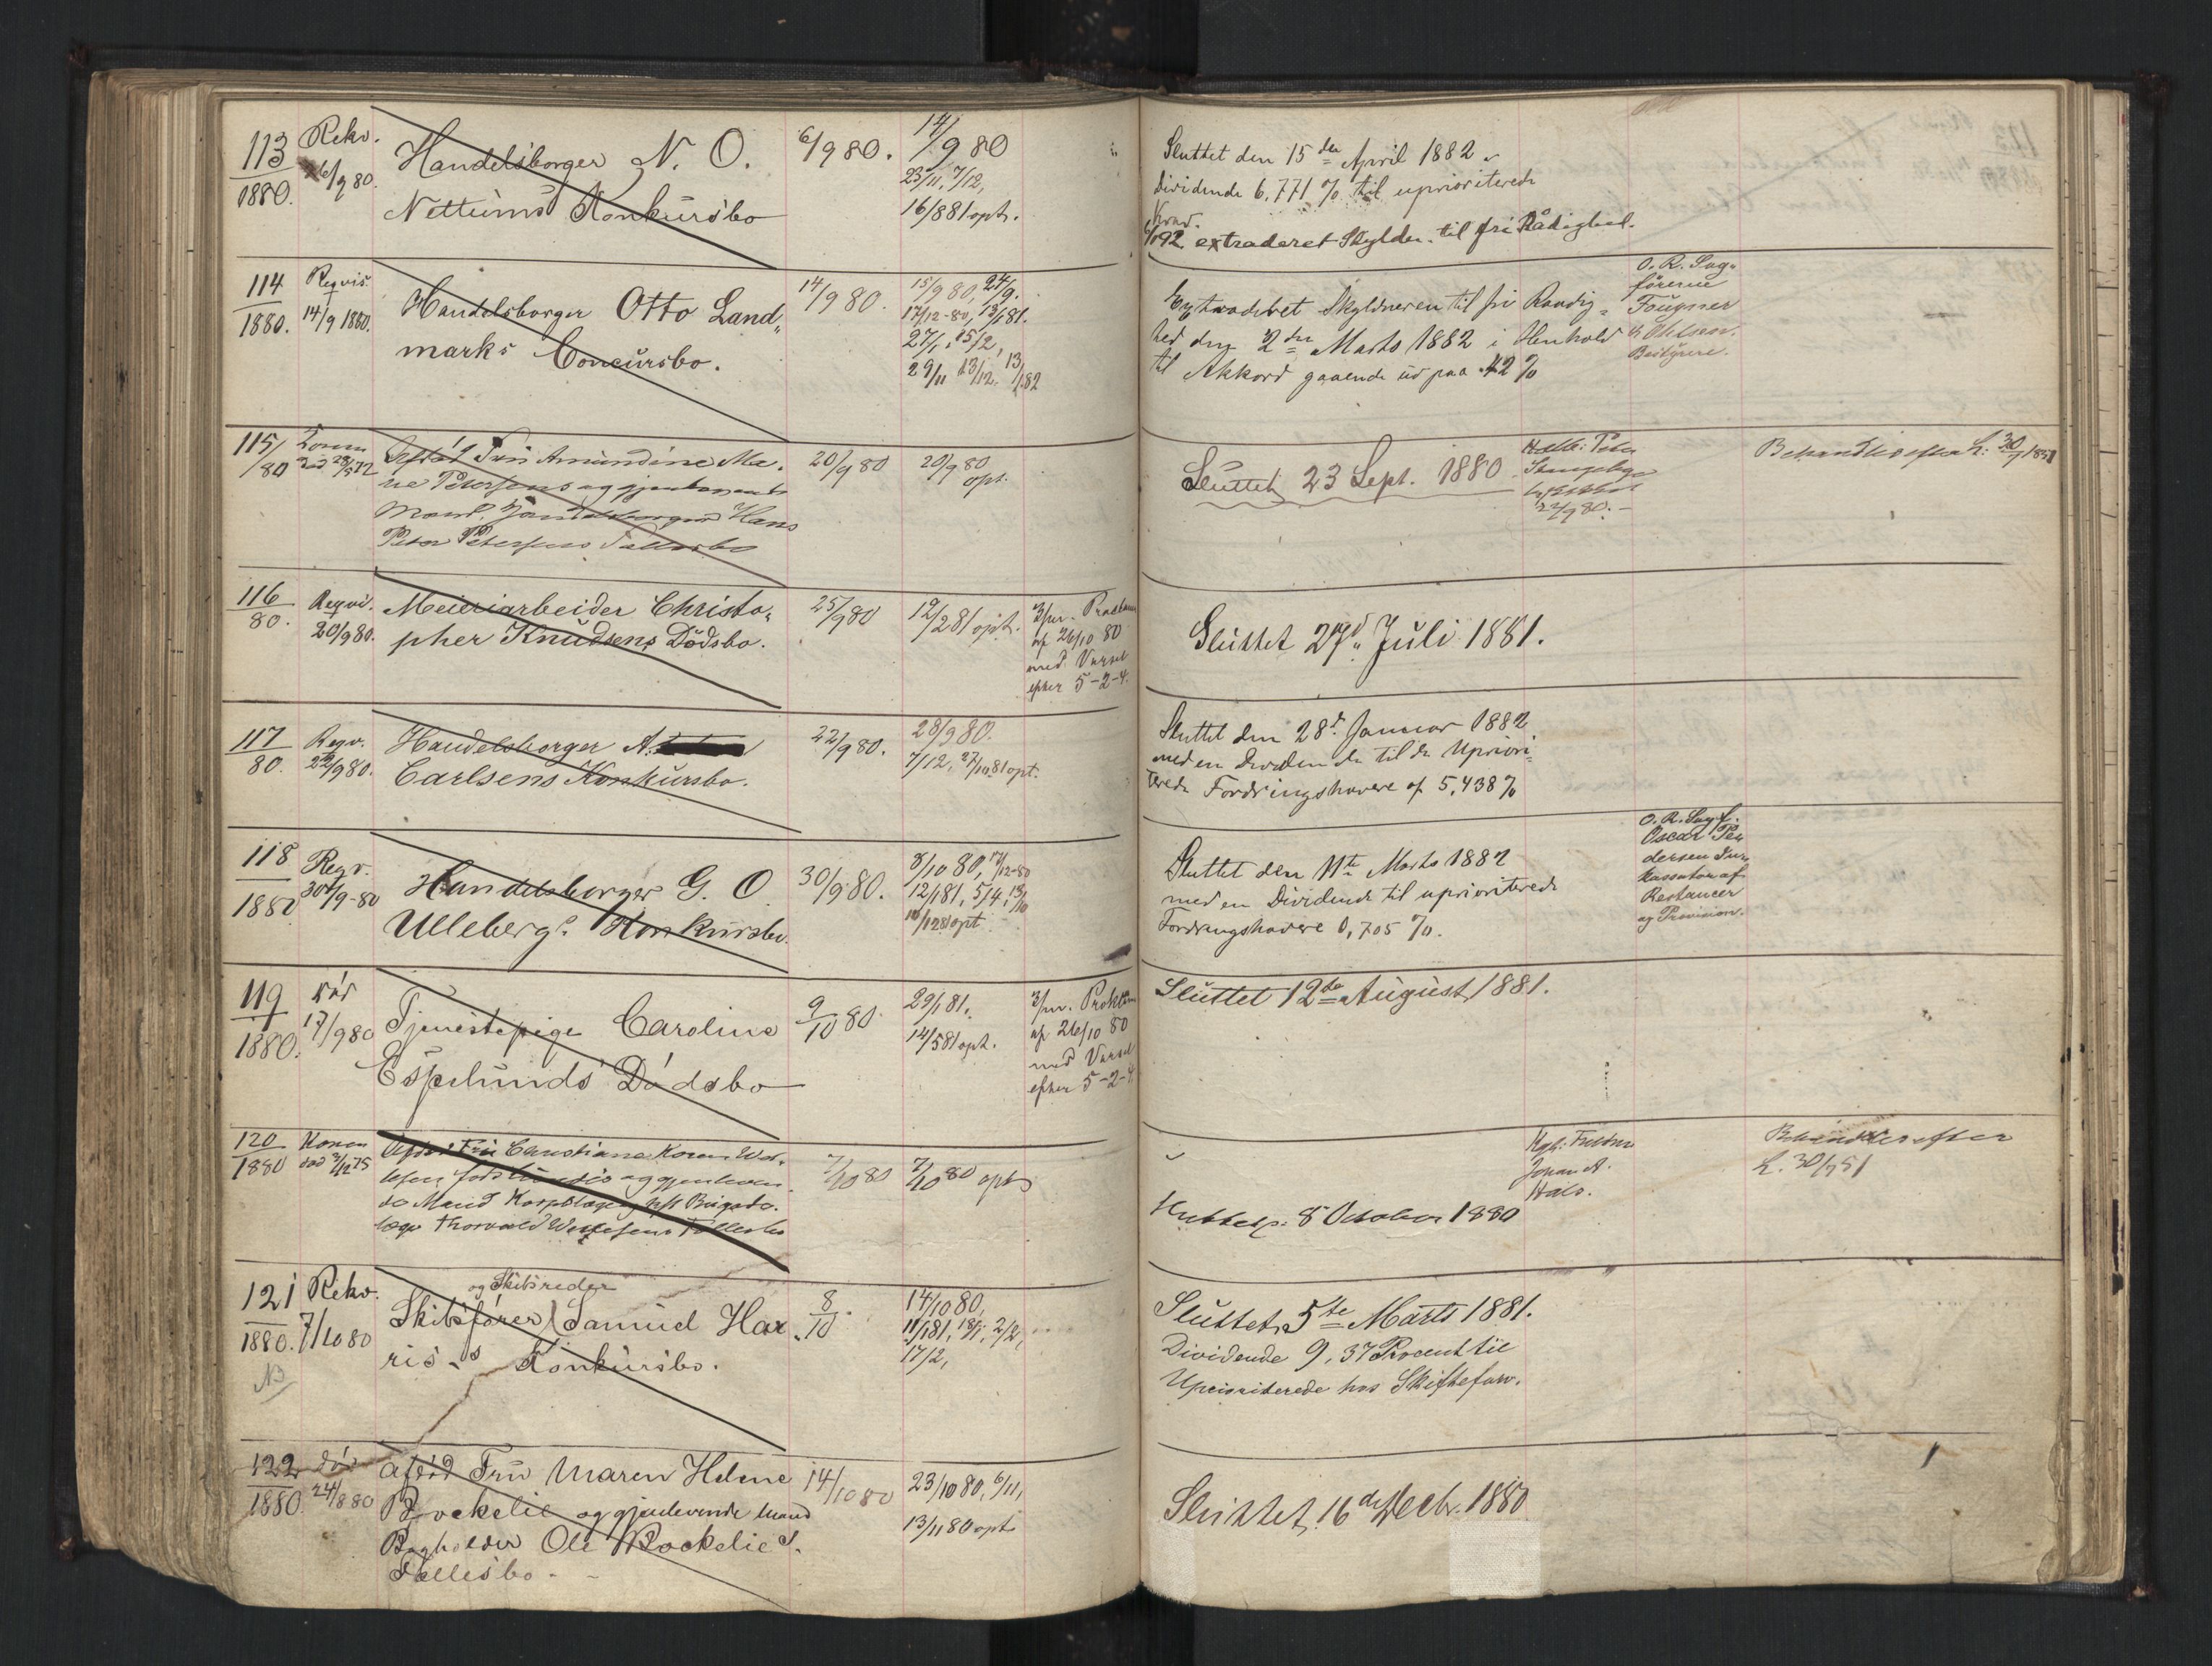 113
1880.
Rekv.
6/9 80.
Handelsborger N. O.
Nettums Konkursbo
6/9 80.
14/9 80
23/11, 7/12,
16/8 81 opt.
Sluttet den 15de April 1882
Dividende 6,771 % til uprioriterede
extraderet Skylden. til fri Rådighed.
114
1880.
Reqvis.
14/9 1880.
Handelsborger Otto Land„
marks Concursbo.
14/9 80.
15/9 80, 24/9.
17/12-80, 13/1 81.
27/1, 15/2,
29/11 13/12, 13/1 82
Extraderet Skyldneren til fri Raadig„
hed den 2den Marts 1882 i Henhold
til Akkord gaaende ud paa 42 %
O. R. Sag„
förerne
Fougner
& Ohlson.
Bestyrere.
115/
80
Konen
død
Afdöd Fru Amundine Ma„
rie Petersens og gjenlevende
Mand, Handelsborger Hans
Peter Petersens Fællesbo
20/9 80
20/9 80
opt.
Sluttet 23 Sept. 1880
22/9 80.-
Behandles efter L. 30/7 1851
116
80.
Reqvi.
20/9 80.
Meieriarbeider Christo„
pher Knudsens Dödsbo.
25/9 80
19/2 81 opt.
3/m. Proclama
af 26/10 80
med Varsel
efter 5-2-4.
Sluttet 29d Juli 1881.
117
80.
Reqv.
22/9 80.
Handelsborger A.
Carlsens Konkursbo.
22/9 80.
28/9 80.
7/12, 27/10 81 opt.
Sluttet den 28d Januar 1882
med en Dividende til de Upriori„
terede Fordringshavere af 5,438 %
118
1880
Reqv.
30/9-80
Handelsborger G. O
Ullebergs Konkursbo.
30/9 80.
8/10 80, 17/12-80
12/1 81, 5/4, 13/10
10/12 81 opt
Sluttet den 11te Marts 1882
med en Dividende til uprioriterede
Fordringshavere 0,705 %.
O. R. Sagf.
Oscar Pe„
dersen In„
kassator af
Restancer
og Provision.
119
1880.
død
17/9 80
Tjenestepige Caroline
Espelunds Dödsbo
9/10 80
29/1 81.
14/5 81 opt.
3/m. Proklama
af 26/10 80
med Varsel
efter 5-2-4.
Sluttet 12te August 1881.
120
1880
Konen
død
Afdød Fru Christiane Koren Wes„
og gjenleven„
de Mand Korpslæge, Brigade„
læge Thorvald Fællesbo
7/10 80
7/10 80 opt
Sluttet: 8 October 1880
Johan A.
Behandles efter
L. 30/7 51
121
1880.
NB
Rekv.
7/10 80
og Skibsreder
Skibsfører Samuel Har„
ris's Konkursbo.
8/10
14/10 80,
11/1 81, 18/1, 2/2,
17/2,
Sluttet 5te Marts 1881.
Dividende 9,37 Procent til
Uprioriterede hos Skifteforv.
122
1880.
død
24/8 80
afdöd Fru Maren Helene
Rockelie og gjenlevende Mand
Bogholder Ole Rockelies
Fællesbo.
14/10 80
23/10 80, 6/11,
13/11 80 opt
Sluttet 16de Decbr. 1880